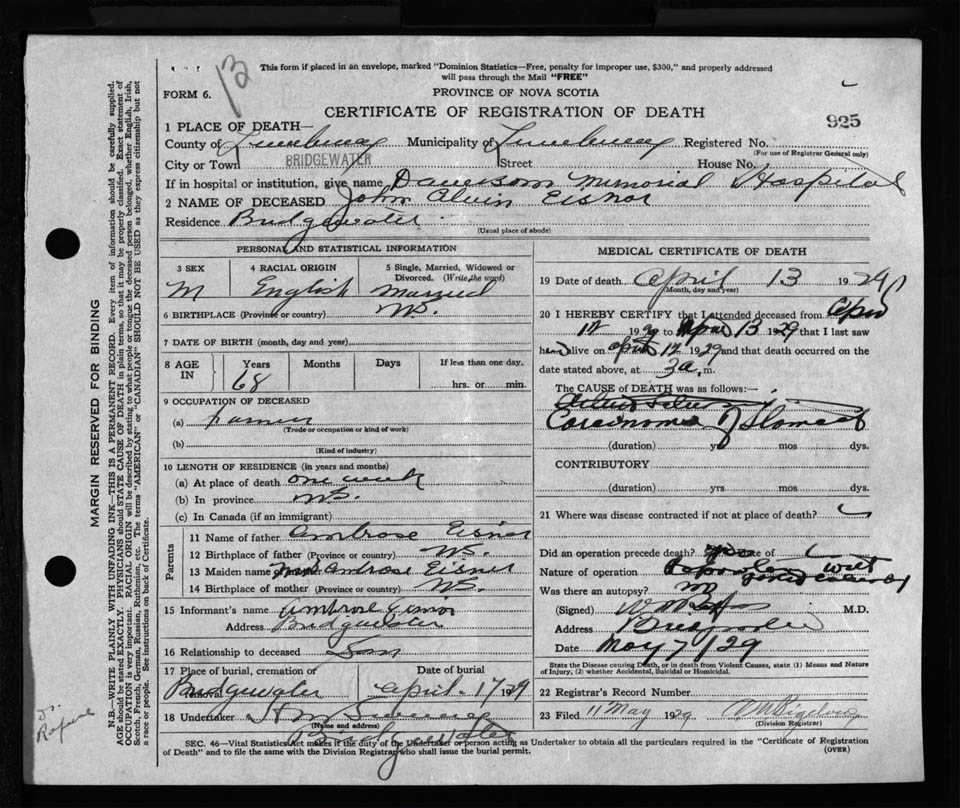 This form if placed in an envelope, marked "Dominion Statistics—Free, penalty for improper use, $300," and properly addressed
will pass through the Mail "FREE"
13
FORM 6.
PROVINCE OF NOVA SCOTIA
CERTIFICATE OF REGISTRATION OF DEATH
925
1 PLACE OF DEATH—
County of Lunenburg Municipality of Lunenburg Registered No.
(For use of Registrar General only)
City or Town BRIDGEWATER Street House No.
If in hospital or institution, give name Dawson Memorial Hospital
2 NAME OF DECEASED John Alvin Eisnor
Residence Bridgewater
(Usual place of abode)
PERSONAL AND STATISTICAL INFORMATION
3 SEX 4 RACIAL ORIGIN 5 Single, Married, Widowed or Divorced. (Write the word)
M English Married
6 BIRTHPLACE (Province or country) NS.
7 DATE OF BIRTH (month, day and year)
8 AGE IN Years Months Days If less than one day,
68 hrs. or min.
9 OCCUPATION OF DECEASED
(a) Farmer
(Trade or occupation or kind of work)
(b)
(Kind of industry)
10 LENGTH OF RESIDENCE (in years and months)
(a) At place of death one week
(b) In province NS.
(c) In Canada (if an immigrant)
Parents
11 Name of father Ambrose Eisnor
12 Birthplace of father (Province or country) NS.
13 Maiden name Ambrose Eisner
14 Birthplace of mother (Province or country) NS.
15 Informant's name Ambrose Eisnor
Address Bridgewater
16 Relationship to deceased Son
17 Place of burial, cremation or Date of burial
Bridgewater April 17 1929
18 Undertaker
(Name and address)
Bridgewater
MEDICAL CERTIFICATE OF DEATH
19 Date of death April 13 1929
(Month, day and year)
20 I HEREBY CERTIFY that I attended deceased from April
12 1929 to April 13 1929 that I last saw
h alive on April 12 1929 and that death occurred on the
date stated above, at 3 a. m.
The CAUSE of DEATH was as follows:
Carcinoma of Stomach
(duration) yrs mos dys.
CONTRIBUTORY
(duration) yrs mos dys.
21 Where was disease contracted if not at place of death?
Did an operation precede death? Date of
Nature of operation
Was there an autopsy? no
(Signed) M.D.
Address Bridgewater
Date May 7/29
State the Disease causing Death, or in death from Violent Causes, state (1) Means and Nature
of Injury, (2) whether Accidental, Suicidal or Homicidal.
22 Registrar's Record Number
23 Filed 11 May 1929
(Division Registrar)
SEC. 46—Vital Statistics Act makes it the duty of the Undertaker or person acting as Undertaker to obtain all the particulars required in the "Certificate of Registration
of Death" and to file the same with the Division Registrar who shall issue the burial permit.
(OVER)
MARGIN RESERVED FOR BINDING
N.B.—WRITE PLAINLY WITH UNFADING INK—THIS IS A PERMANENT RECORD. Every item of information should be carefully supplied.
AGE should be stated EXACTLY. PHYSICIANS should STATE CAUSE OF DEATH in plain terms, so that it may be properly classified. Exact statement of
OCCUPATION is very important. RACIAL ORIGIN will be described by stating to what people or tongue the deceased person belonged, whether English, Irish,
Scotch, French, German, Russian, Ruthenian, etc. The terms "AMERICAN" or "CANADIAN" SHOULD NOT BE USED as they express citizenship but not
a race or people. See instructions on back of Certificate.